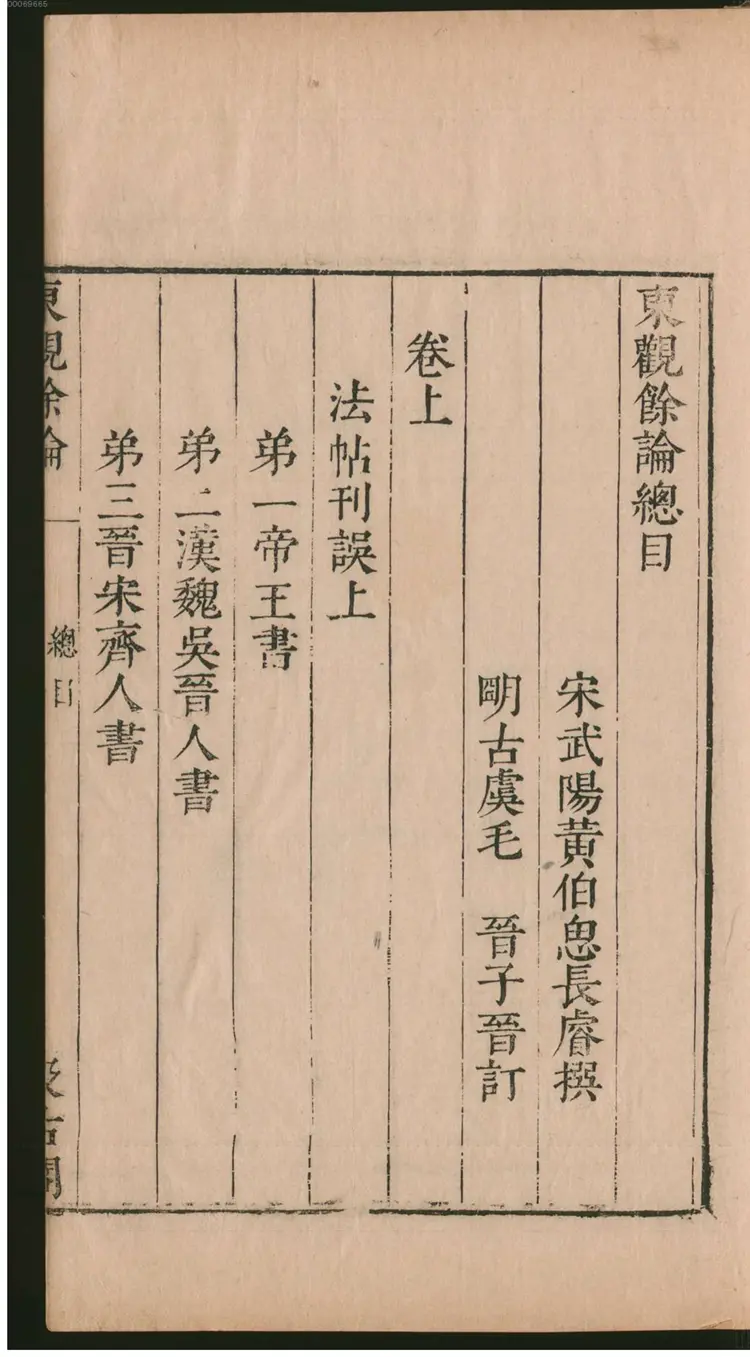 東觀餘論總目
宋武陽黃伯思長睿撰
明古虞毛 晉子晉訂
卷上
法帖刊誤上
弟一帝王書
弟二漢魏吳晉人書
弟三晉宋齊人書
東觀餘論
總目
汲古閣
00069665